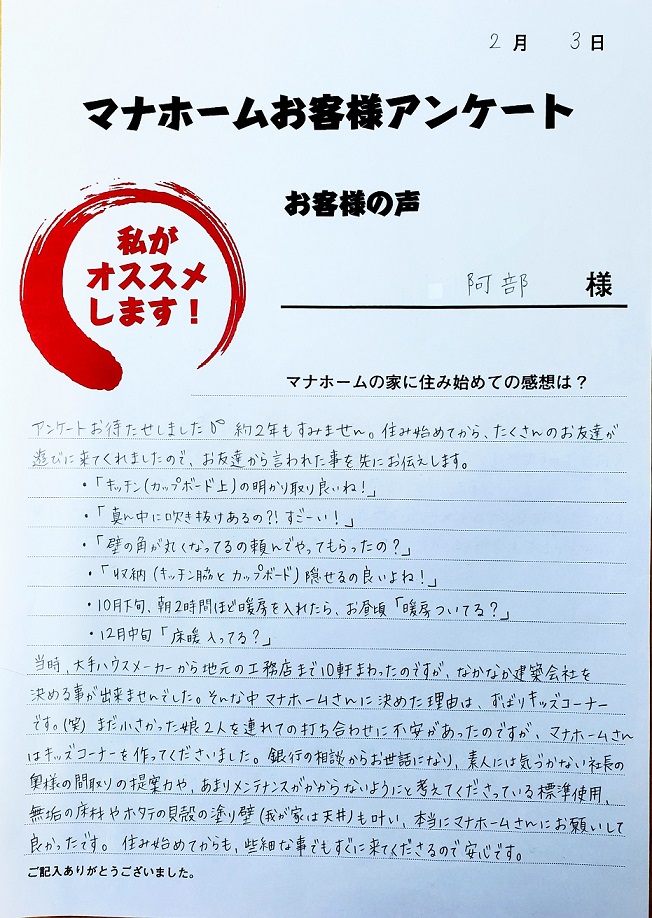 2月 3日
マナホームお客様アンケート
お客様の声
私が
オススメ
します！
阿部 様
マナホームの家に住み始めての感想は？
アンケートお待たせしました 約2年もすみません。住み始めてから、たくさんのお友達が
遊びに来てくれましたので、お友達から言われた事を先にお伝えします。
・「キッチン(カップボード上)の明かり取り良いね!」
・「真ん中に吹き抜けあるの?! すごーい!」
・「壁の角が丸くなってるの頼んでやってもらったの?」
・「収納(キッチン脇とカップボード)隠せるの良いよね!」
・10月下旬、朝2時間ほど暖房を入れたら、お昼頃「暖房ついてる?」
・12月中旬「床暖入ってる?」
当時、大手ハウスメーカーから地元の工務店まで10軒まわったのですが、なかなか建築会社を
決める事が出来ませんでした。そんな中マナホームさんに決めた理由は、ずばりキッズコーナー
です。(笑) まだ小さかった娘2人を連れての打ち合わせに不安があったのですが、マナホームさん
はキッズコーナーを作ってくださいました。銀行の相談からお世話になり、素人には気づかない社長の
奥様の間取りの提案力や、あまりメンテナンスがかからないようにと考えてくださっている標準使用、
無垢の床材やホタテの貝殻の塗り壁(我が家は天井)も叶い、本当にマナホームさんにお願いして
良かったです。 住み始めてからも、些細な事でもすぐに来てくださるので安心です。
ご記入ありがとうございました。